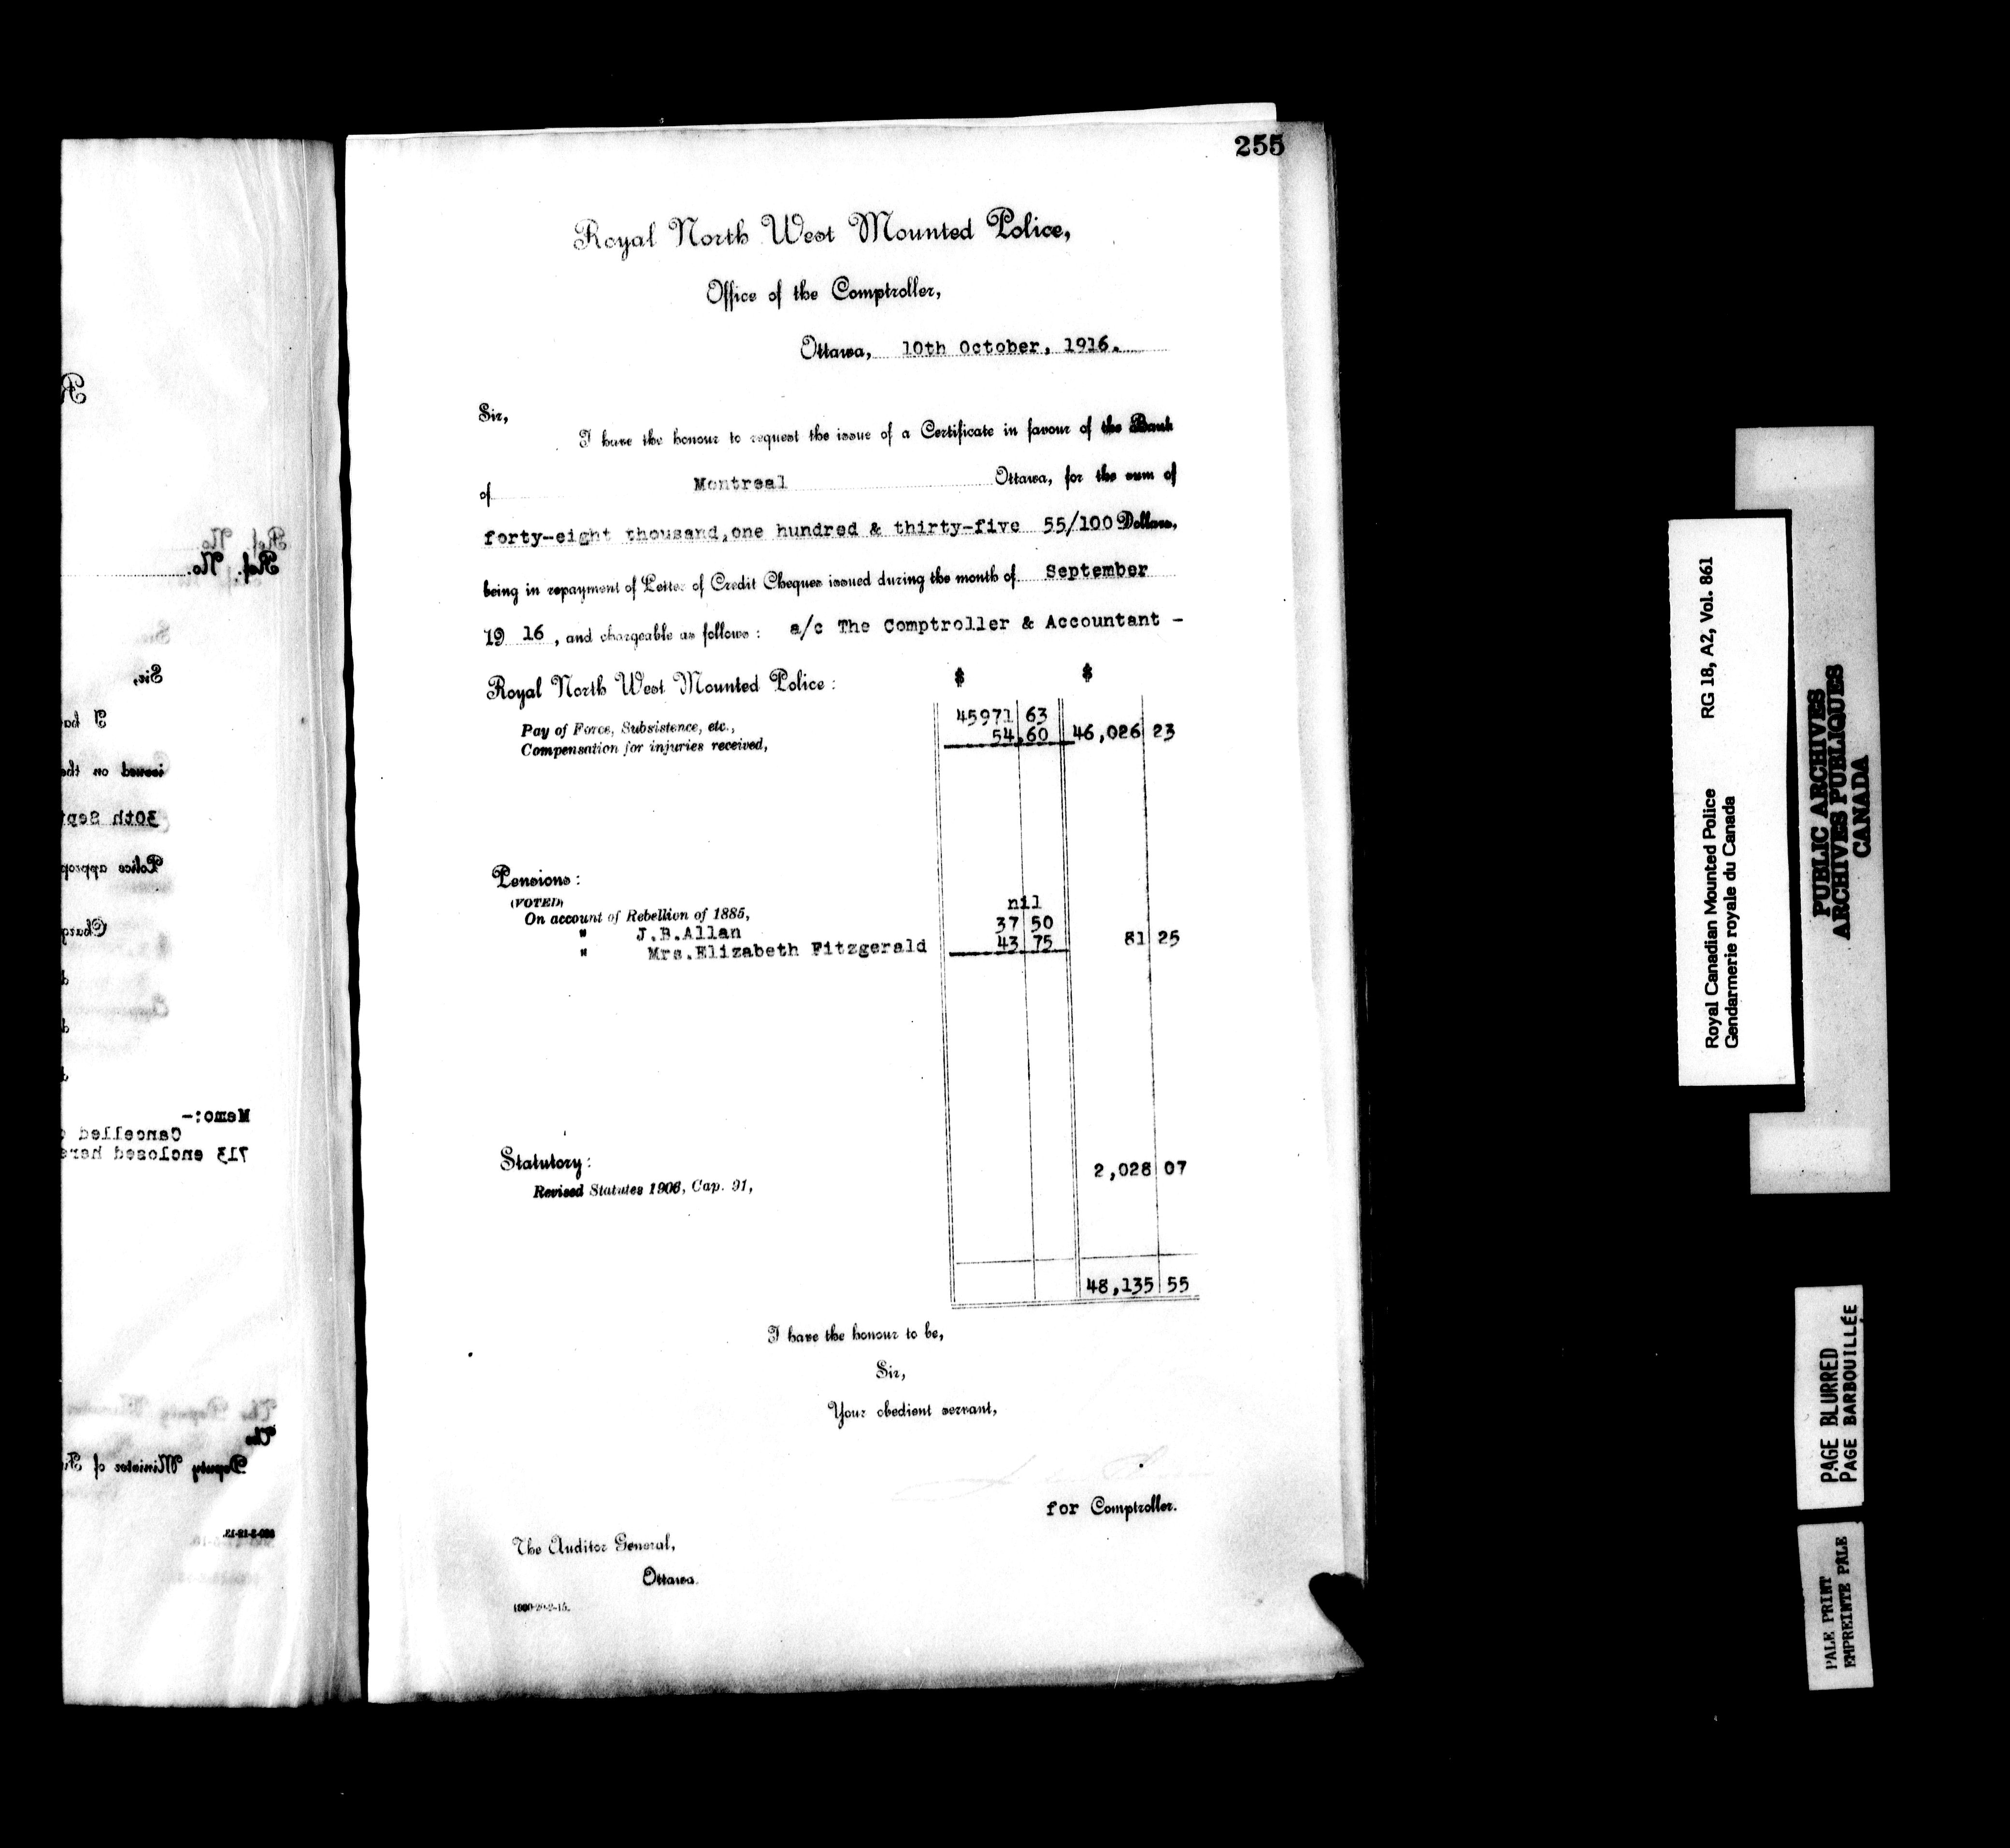 255
Royal North West Mounted Police,
Office of the Comptroller,
Ottawa, 10th October, 1916.
Sir,
I have the honour to request the issue of a Certificate in favour of the Bank
of Montreal Ottawa, for the sum of
forty-eight thousand, one hundred & thirty-five 55/100 Dollars,
being in repayment of Letter of Credit Cheques issued during the month of September
19 16, and chargeable as follows: a/c The Comptroller & Accountant -
Royal North West Mounted Police: $ $
Pay of Force, Subsistence, etc., 45971 63
Compensation for injuries received, 54,60 46,026 23
Pensions:
(VOTED)
On account of Rebellion of 1885, nil
" J.B.Allan 37 50
" Mrs.Elizabeth Fitzgerald 43 75 81 25
Statutory:
Revised Statutes 1906, Cap. 91, 2,028 07
48,135 55
I have the honour to be,
Sir,
Your obedient servant,
for Comptroller.
The Auditor General,
Ottawa.
Ref. No.
Ref. No.
Sir,
I ha
issued on the
30th Sept
Police approp
Charg
Memo:-
Cancelled
713 enclosed here
The Deputy Minister
The
Deputy Minister of Fi
Royal Canadian Mounted Police RG 18, A2, Vol. 861
Gendarmerie royale du Canada
PUBLIC ARCHIVES
ARCHIVES PUBLIQUES
CANADA
PAGE BLURRED
PAGE BARBOUILLÉE
PALE PRINT
EMPREINTE PALE